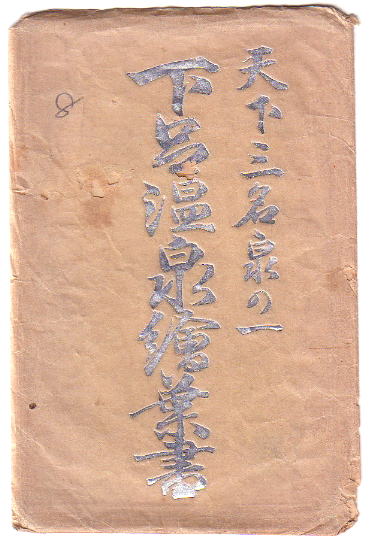 天下三名泉の一
下呂温泉繪葉書
8